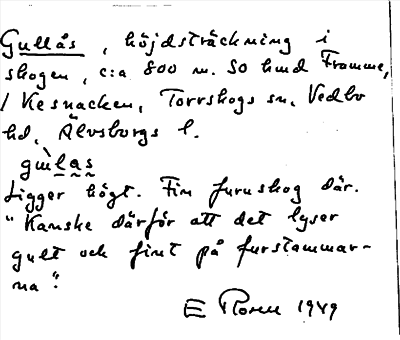 Gullås, höjdsträckning i
skogen, c:a 800 m. SO hmd Framme,
/ Kesnacken, Torrskogs sn. Vedbo
hd, Älvsborgs l.
gùlas
Ligger högt. Fin furuskog där.
"Kanske därför att det lyser
gult och fint på furstammar-
na".
E Noreen 1949